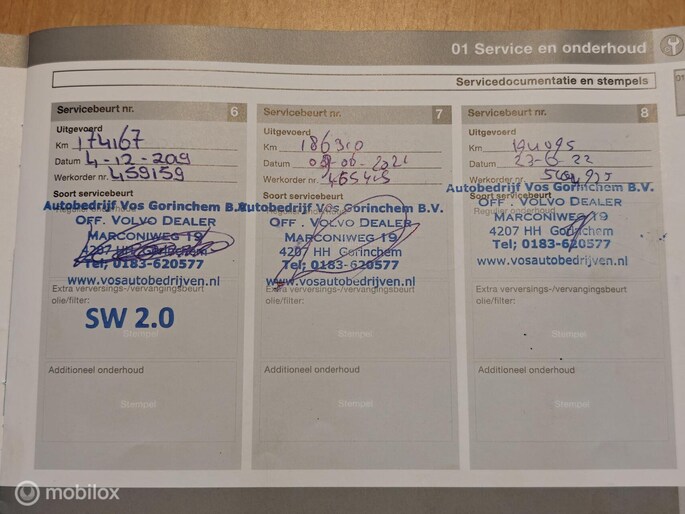 01 Service en onderhoud
01
Servicedocumentatie en stempels
Servicebeurt nr. 6
Uitgevoerd
Km 174167
Datum 4-12-209
Werkorder nr. 459159
Soort servicebeurt
Autobedrijf Vos Gorinchem B.V.
OFF. VOLVO DEALER
MARCONIWEG 19
4207 HH Gorinchem
Tel; 0183-620577
www.vosautobedrijven.nl
Extra verversings-/vervangingsbeurt
olie/filter:
SW 2.0
Stempel
Additioneel onderhoud
Stempel
Servicebeurt nr. 7
Uitgevoerd
Km 186310
Datum
Werkorder nr.
Soort servicebeurt
Autobedrijf Vos Gorinchem B.V.
OFF. VOLVO DEALER
MARCONIWEG 19
4207 HH Gorinchem
Tel; 0183-620577
www.vosautobedrijven.nl
Extra verversings-/vervangingsbeurt
olie/filter:
Stempel
Additioneel onderhoud
Stempel
Servicebeurt nr. 8
Uitgevoerd
Km
Datum
Werkorder nr.
Soort servicebeurt
Autobedrijf Vos Gorinchem B.V.
Regulier onderhoud
OFF. VOLVO DEALER
MARCONIWEG 19
4207 HH Gorinchem
Tel; 0183-620577
www.vosautobedrijven.nl
Extra verversings-/vervangingsbeurt
olie/filter:
Stempel
Additioneel onderhoud
Stempel
mobilox